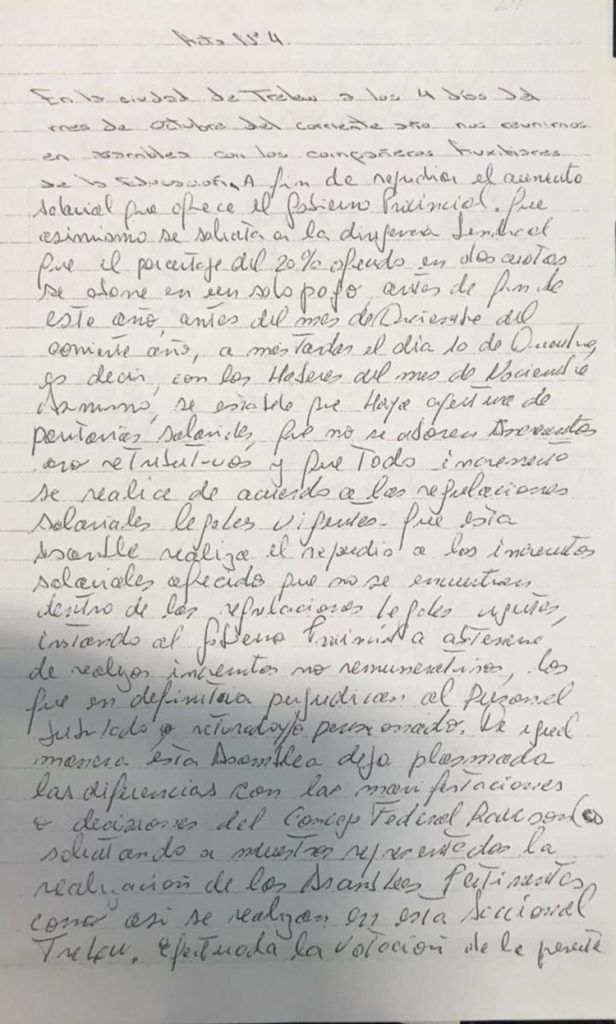 Acta Nº 4.
En la ciudad de Trelew a los 4 días del
mes de Octubre del corriente año nos reunimos
en asamblea con los compañeros Auxiliares
de la Educación, A fin de repudiar el aumento
salarial que ofrece el Gobierno Provincial. Que
asimismo se solicita a la dirigencia Sindical
que el porcentaje del 20% ofrecido en dos cuotas
se abone en un solo pago, antes de fin de
este año, antes del mes de Diciembre del
corriente año, a mas tardar el dia 10 de
es decir, con los Haberes del mes de Noviembre
Asimismo, se establece que Haya apertura de
paritarias salariales, que no se abonen
no retributivos, y que Todo incremento
se realice de acuerdo a las regulaciones
salariales legales vigentes. Que esta
Asamblea realiza el repudio a los incrementos
salariales ofrecido que no se encuentran
dentro de las regulaciones legales vigentes,
instando al Gobierno Provincial a abstenerse
de realizar incrementos no remunerativos, los
que en definitiva perjudican al Personal
Jubilado o retirado y/o pensionado. De igual
manera esta Asamblea deja plasmada
las diferencias con las manifestaciones
o decisiones del Federal Rawson
solicitando a nuestros representados la
realización de las Asambleas Pertinentes,
como asi se realizan en esta Seccional
Trelew. Efectuada la votación de la presente